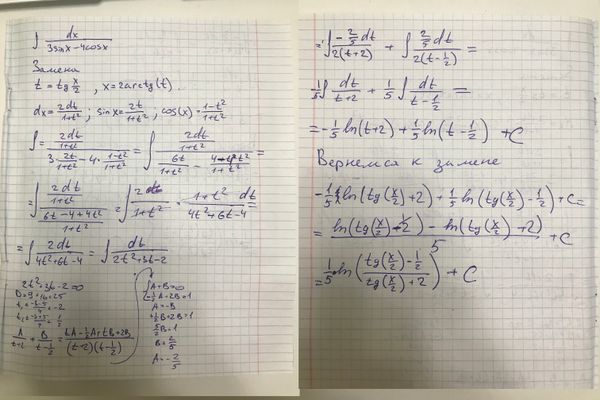 ∫ dx / (3sinx - 4cosx)
Замена
t = tg x/2 , x = 2arctg(t).
dx = 2dt/(1+t²) ; sinx = 2t/(1+t²) ; cos(x) = (1-t²)/(1+t²)
∫ = (2dt/(1+t²)) / (3·2t/(1+t²) - 4·(1-t²)/(1+t²)) = ∫ (2dt/(1+t²)) / (6t/(1+t²) - (4-4t²)/(1+t²)) =
= ∫ (2dt/(1+t²)) / ((6t-4+4t²)/(1+t²)) = ∫ 2dt/(1+t²) · (1+t² dt)/(4t²+6t-4) =
= ∫ 2dt/(4t²+6t-4) = ∫ dt/(2t²+3t-2)
2t²+3t-2=0
D = 9+16=25
t₁ = (-3-5)/4 = -2
t₂ = (-3+5)/4 = 1/2
A/(t+2) + B/(t-1/2) = (tA-1/2A+tB+2B)/((t+2)(t-1/2))
A+B=0
-1/2A+2B=1
A=-B
1/2B+2B=1
5/2B=1
B=2/5
A=-2/5
= ∫ (-2/5 dt)/(2(t+2)) + ∫ (2/5 dt)/(2(t-1/2)) =
-1/5 ∫ dt/(t+2) + 1/5 ∫ dt/(t-1/2) =
= -1/5 ln(t+2) + 1/5 ln(t-1/2) + C
Вернемся к замене
-1/5 ln(tg(x/2)+2) + 1/5 ln(tg(x/2)-1/2) + C =
= (ln(tg(x/2)-1/2) - ln(tg(x/2)+2))/5 + C
= 1/5 ln((tg(x/2)-1/2)/(tg(x/2)+2)) + C